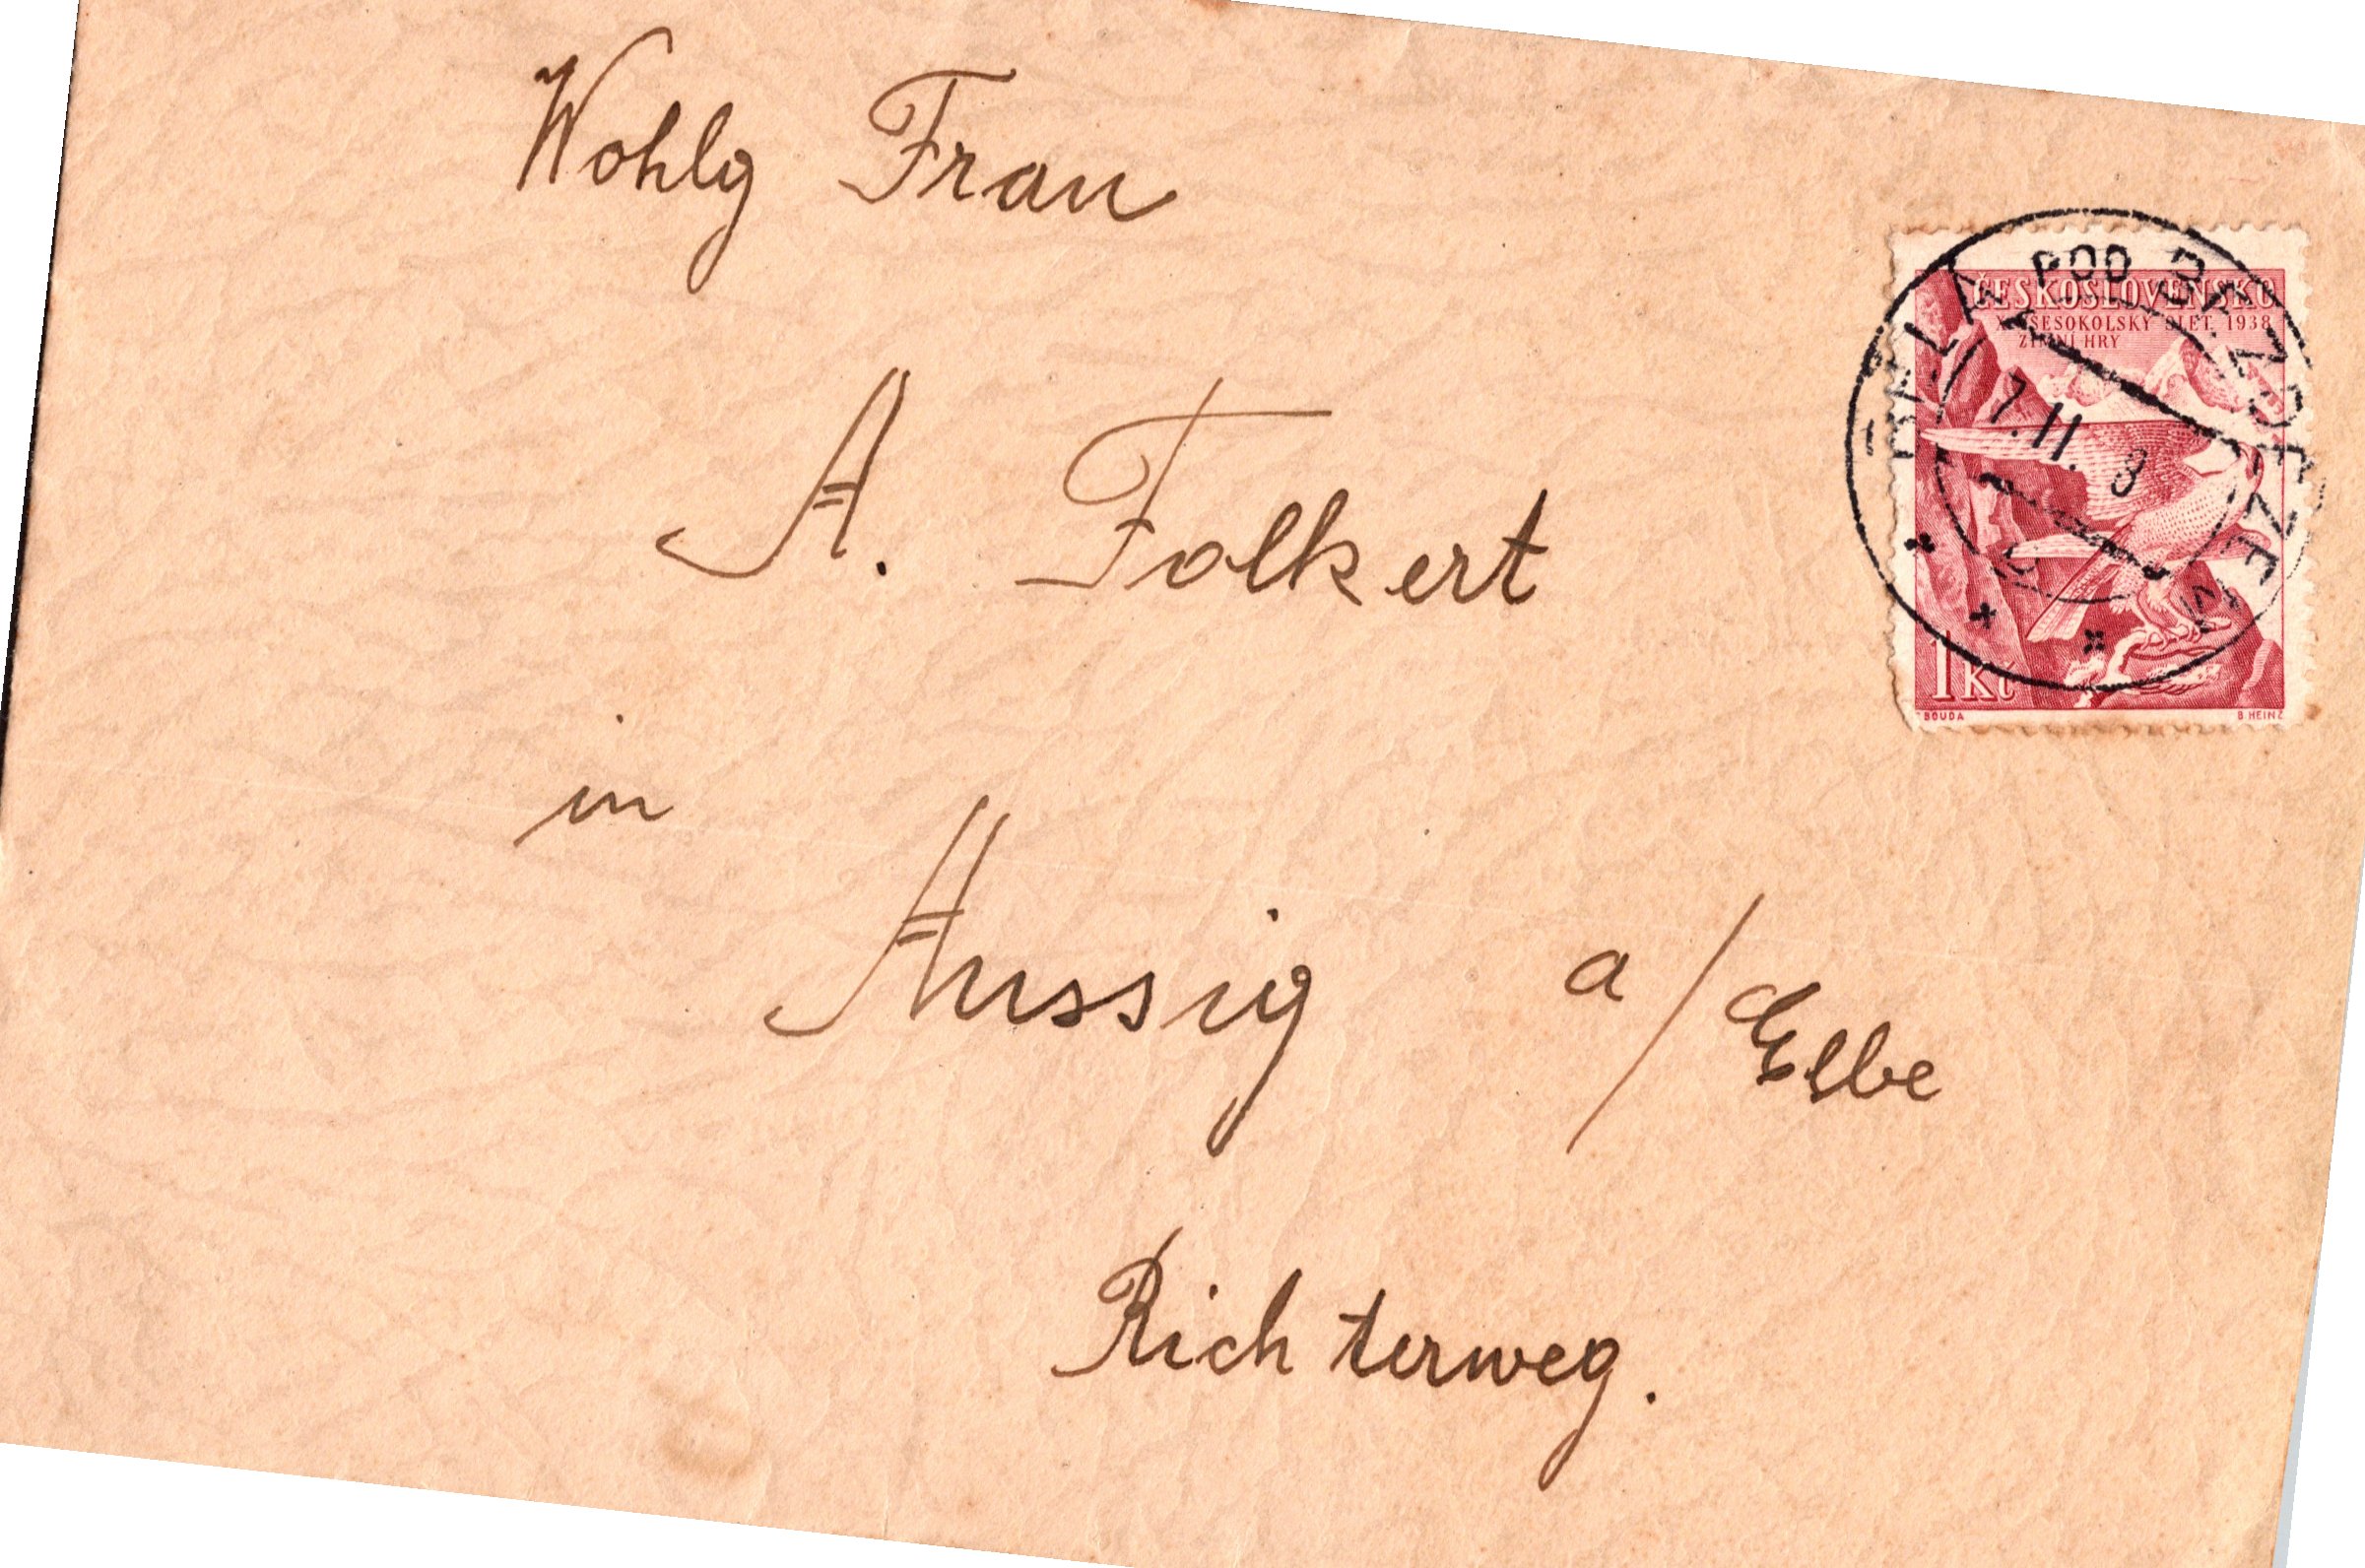 Wohlg Frau
A. Folkert
in
Aussig a/Elbe
Richterweg.
ČESKOSLOVENSKO
X. VŠESOKOLSKÝ SLET 1938
ZIMNÍ HRY
1 Kč
BOUDA
B HEINZ
BĚLÁ POD BEZDĚZEM
7.II. 8